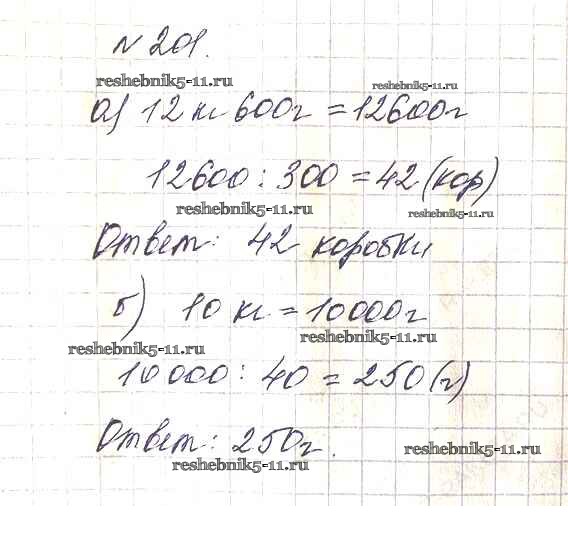 № 201.
reshebnik5-11.ru
reshebnik5-11.ru
а) 12 кг 600г = 12600г
12600 : 300 = 42 (кор)
reshebnik5-11.ru
reshebnik5-11.ru
Ответ: 42 коробки
б) 10 кг = 10000г
reshebnik5-11.ru
reshebnik5-11.ru
10 000 : 40 = 250 (г)
Ответ: 250г.
reshebnik5-11.ru
reshebnik5-11.ru